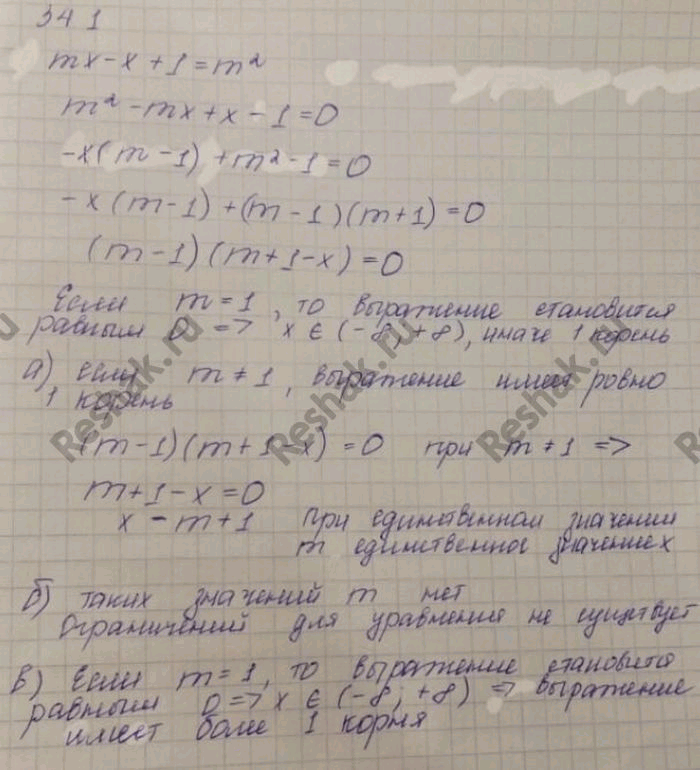 34 1
mx - x + 1 = m²
m² - mx + x - 1 = 0
-x(m - 1) + m² - 1 = 0
-x(m - 1) + (m - 1)(m + 1) = 0
(m - 1)(m + 1 - x) = 0
Если m = 1, то выражение становится
равным 0 => x ∈ (-8; +8), иначе 1 корень
а) если m ≠ 1, выражение имеет ровно
1 корень
(m - 1)(m + 1 - x) = 0 при m ≠ 1 =>
m + 1 - x = 0
x - m + 1 при единственном значении
m единственное значение x
б) таких значений m нет
Ограничений для уравнения не существует
в) Если m = 1, то выражение становится
равным 0 => x ∈ (-8; +8) => выражение
имеет более 1 корня
Reshak.ru
Reshak.ru
Reshak.ru